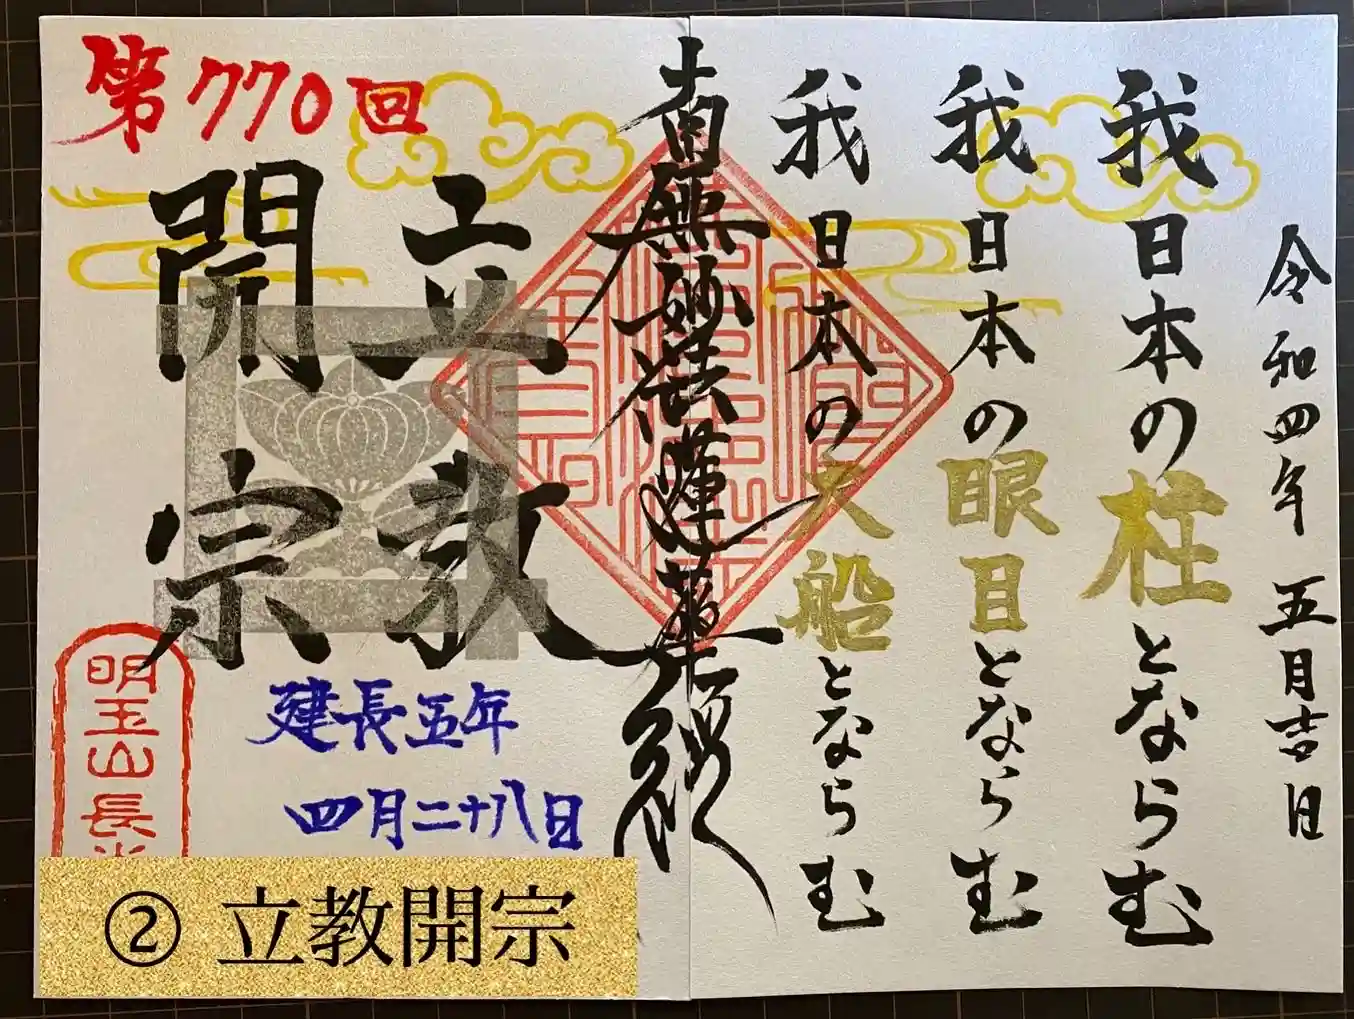 令和四年 五月吉日
我日本の柱とならむ
我日本の眼目とならむ
我日本の大船とならむ
南無妙法蓮華経
第770回
立教
開宗
建長五年
四月二十八日
明玉山長
② 立教開宗